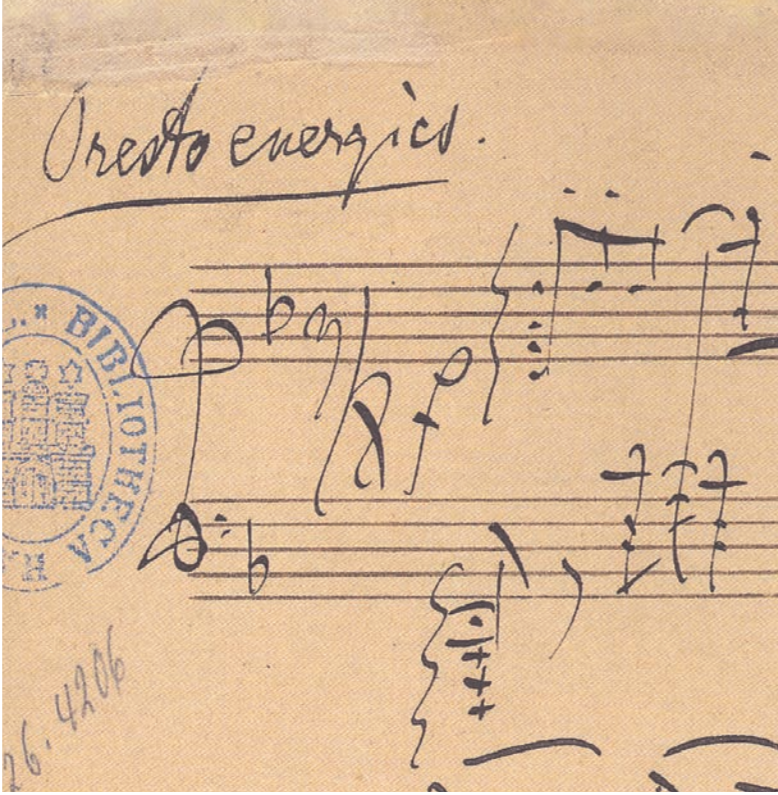 Presto energico.
BIBLIOTHECA
26.4206